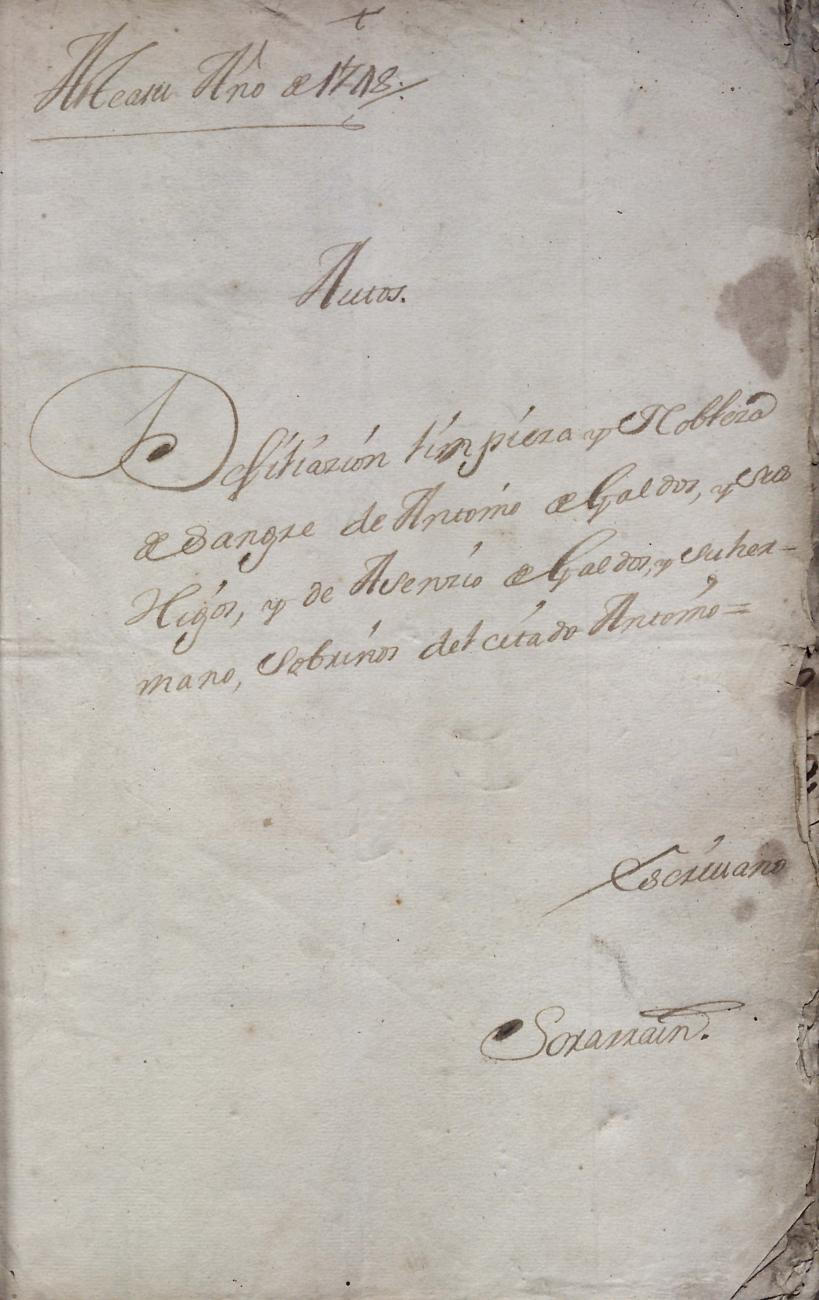 +
Año de 1718.
Autos.
De filiazión limpieza y Nobleza
de Sangre de Antonio de Galdos, y sus
Hijos, y de Asenzio de Galdos, y su her-
mano, Sobrinos del citado Antonio=
Escriuano
Sorarrain.